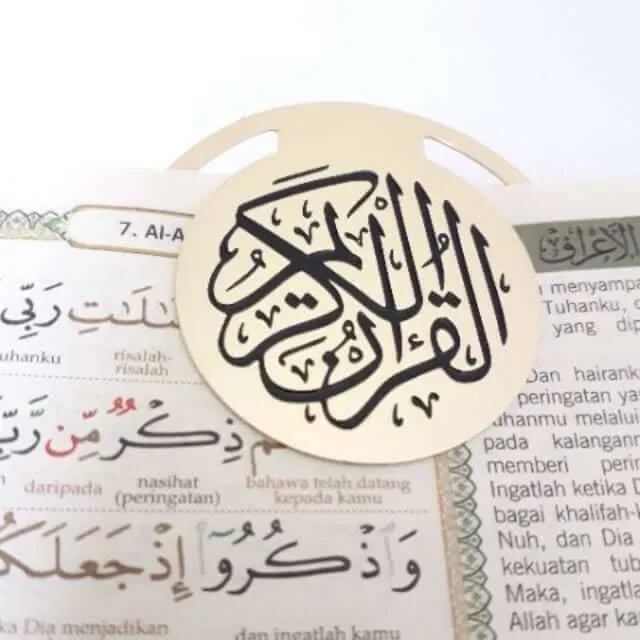 القرآن الكريم
7. Al-A
الأعراف
ـلَـٰتِ رَبِّي
uhanku risalah-
risalah
ذِكْرٌ مِّن رَّبِّ
daripada nasihat (peringatan) bahawa telah datang kepada kamu
وَٱذْكُرُوٓا۟ إِذْ جَعَلَكُ
a Dia menjadikan dan ingatlah kamu
menyampa
Tuhanku, d
yang dip
Dan hairank
peringatan ya
uhanmu melalui
pada kalangann
memberi peri
Ingatlah ketika D
bagai khalifah-k
Nuh, dan Dia
kekuatan tub
Maka, ingatla
Allah agar ka